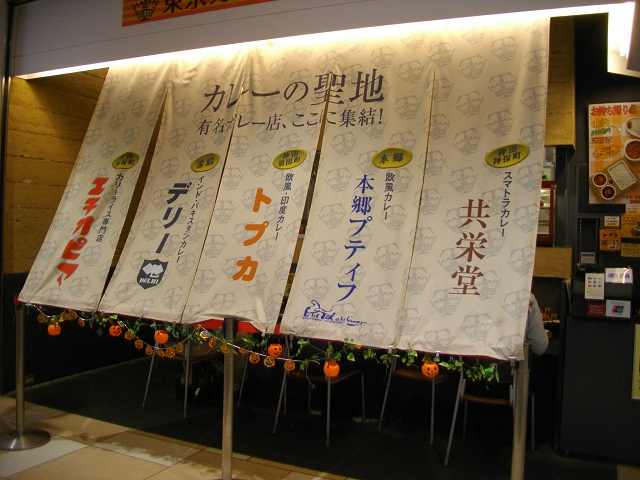 カレーの聖地
有名カレー店、ここに集結!
神田
神保町
カリーライス専門店
エチオピア
インド・パキスタンカレー
デリー
DELHI
神田
須田町
欧風・印度カレー
トプカ
本郷
欧風カレー
本郷プティフ
神田
神保町
スマトラカレー
共栄堂
お持ち帰り